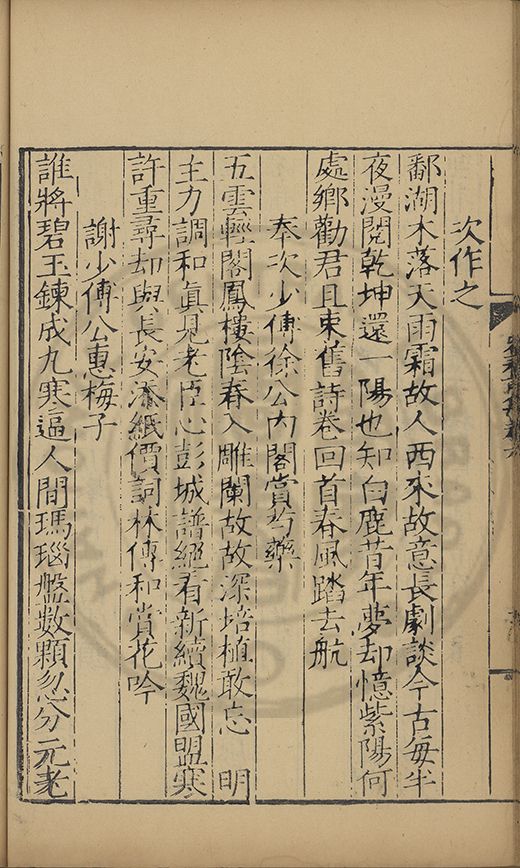 次作之
鄱湖木落天雨霜故人西來故意長劇談今古每半
夜漫閱乾坤還一陽也知白鹿昔年夢却憶紫陽何
處鄉勸君且束舊詩卷回首春風踏去航
奉次少傅徐公內閣賞芍藥
五雲輕閣鳳樓陰春入雕闌故故深培植敢忘　明
主力調和眞見老臣心彭城譜絕看新續魏國盟寒
許重尋却與長安添紙價詞林傳和賞花吟
謝少傅公惠梅子
誰將碧玉鍊成丸寒逼人間瑪瑙盤數顆忽分元老